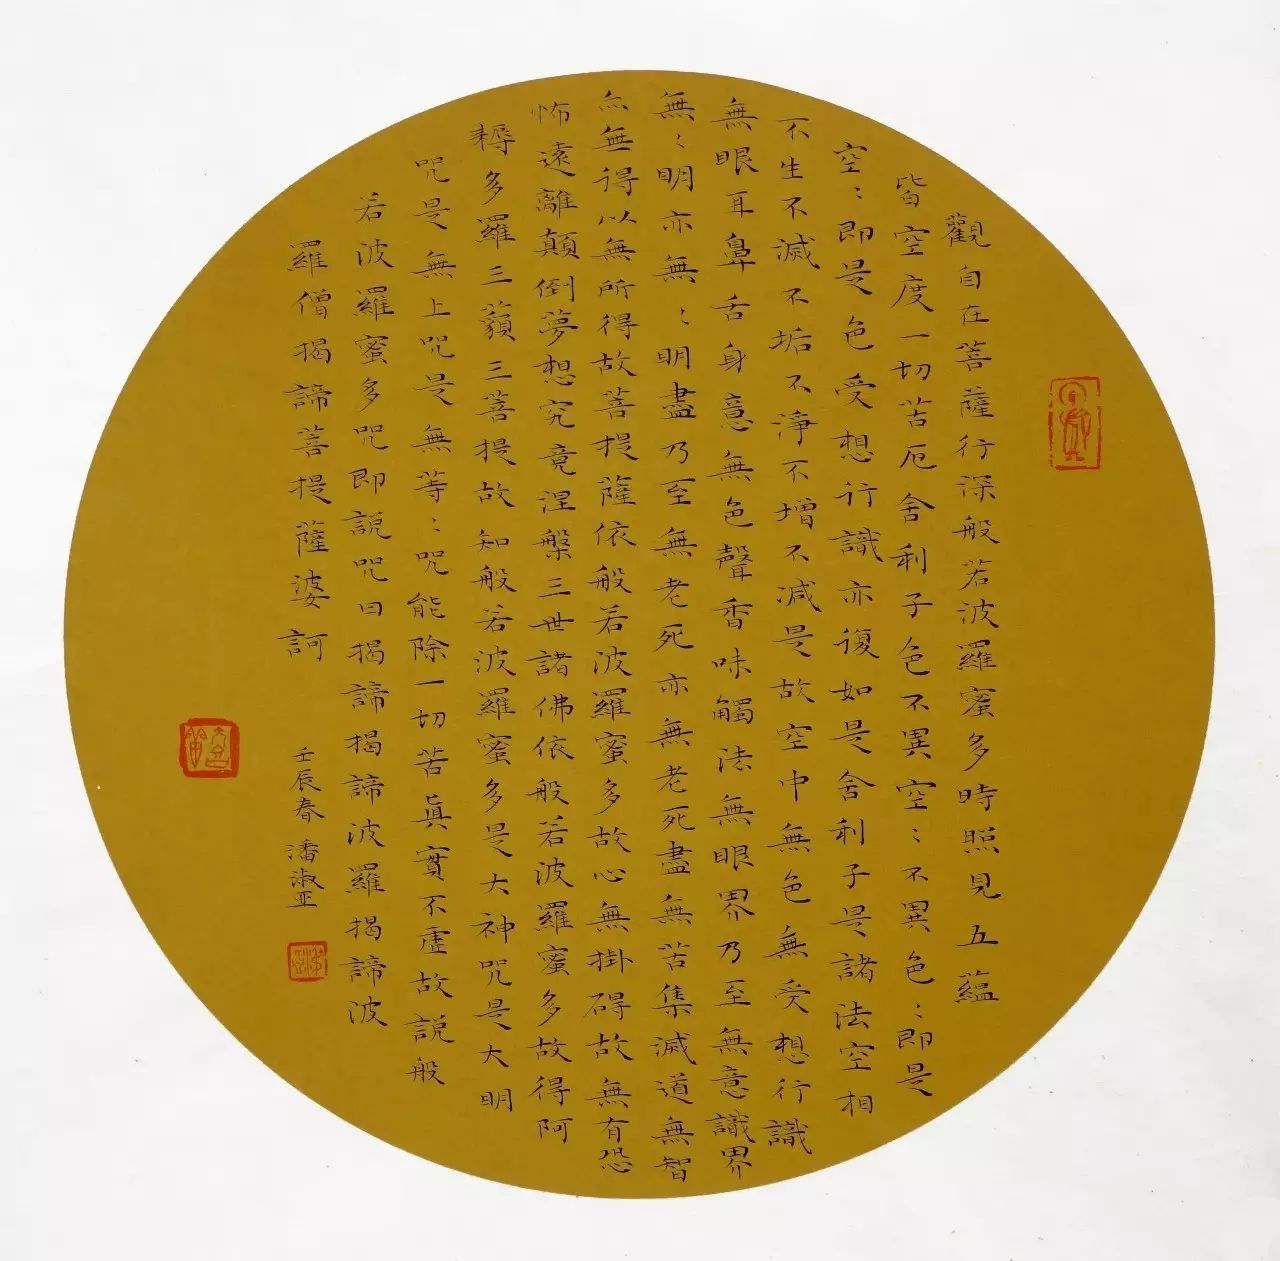 觀自在菩薩行深般若波羅蜜多時照見五蘊
皆空度一切苦厄舍利子色不異空〻不異色〻即是
空〻即是色受想行識亦復如是舍利子是諸法空相
不生不滅不垢不淨不增不減是故空中無色無受想行識
無眼耳鼻舌身意無色聲香味觸法無眼界乃至無意識界
無〻明亦無〻明盡乃至無老死亦無老死盡無苦集滅道無智
亦無得以無所得故菩提薩依般若波羅蜜多故心無掛碍故無有恐
怖遠離顛倒夢想究竟涅槃三世諸佛依般若波羅蜜多故得阿
耨多羅三藐三菩提故知般若波羅蜜多是大神咒是大明
咒是無上咒是無等〻咒能除一切苦真實不虛故說般
若波羅蜜多咒即說咒曰揭諦揭諦波羅揭諦波
羅僧揭諦菩提薩婆訶
壬辰春 潘淑亚